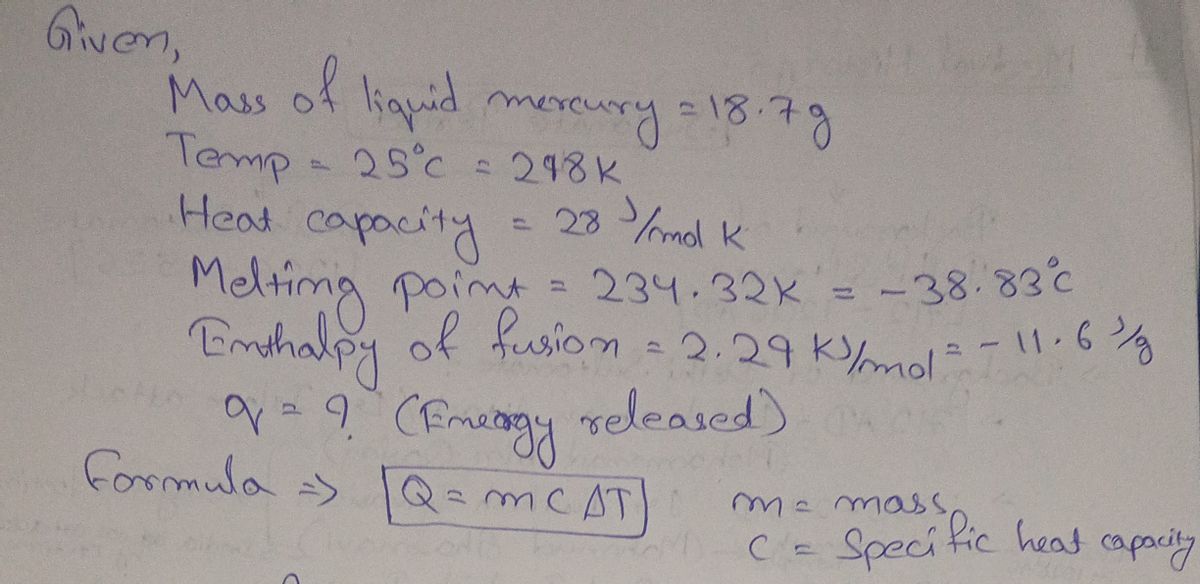 Given,
Mass of liquid mercury = 18.7g
Temp = 25°C = 298K
Heat capacity = 28 J/mol K
Melting point = 234.32K = -38.83°C
Enthalpy of fusion = 2.29 KJ/mol = -11.6 J/g
q = ? (Energy released)
Formula => Q = mCΔT m = mass
C = Specific heat capacity